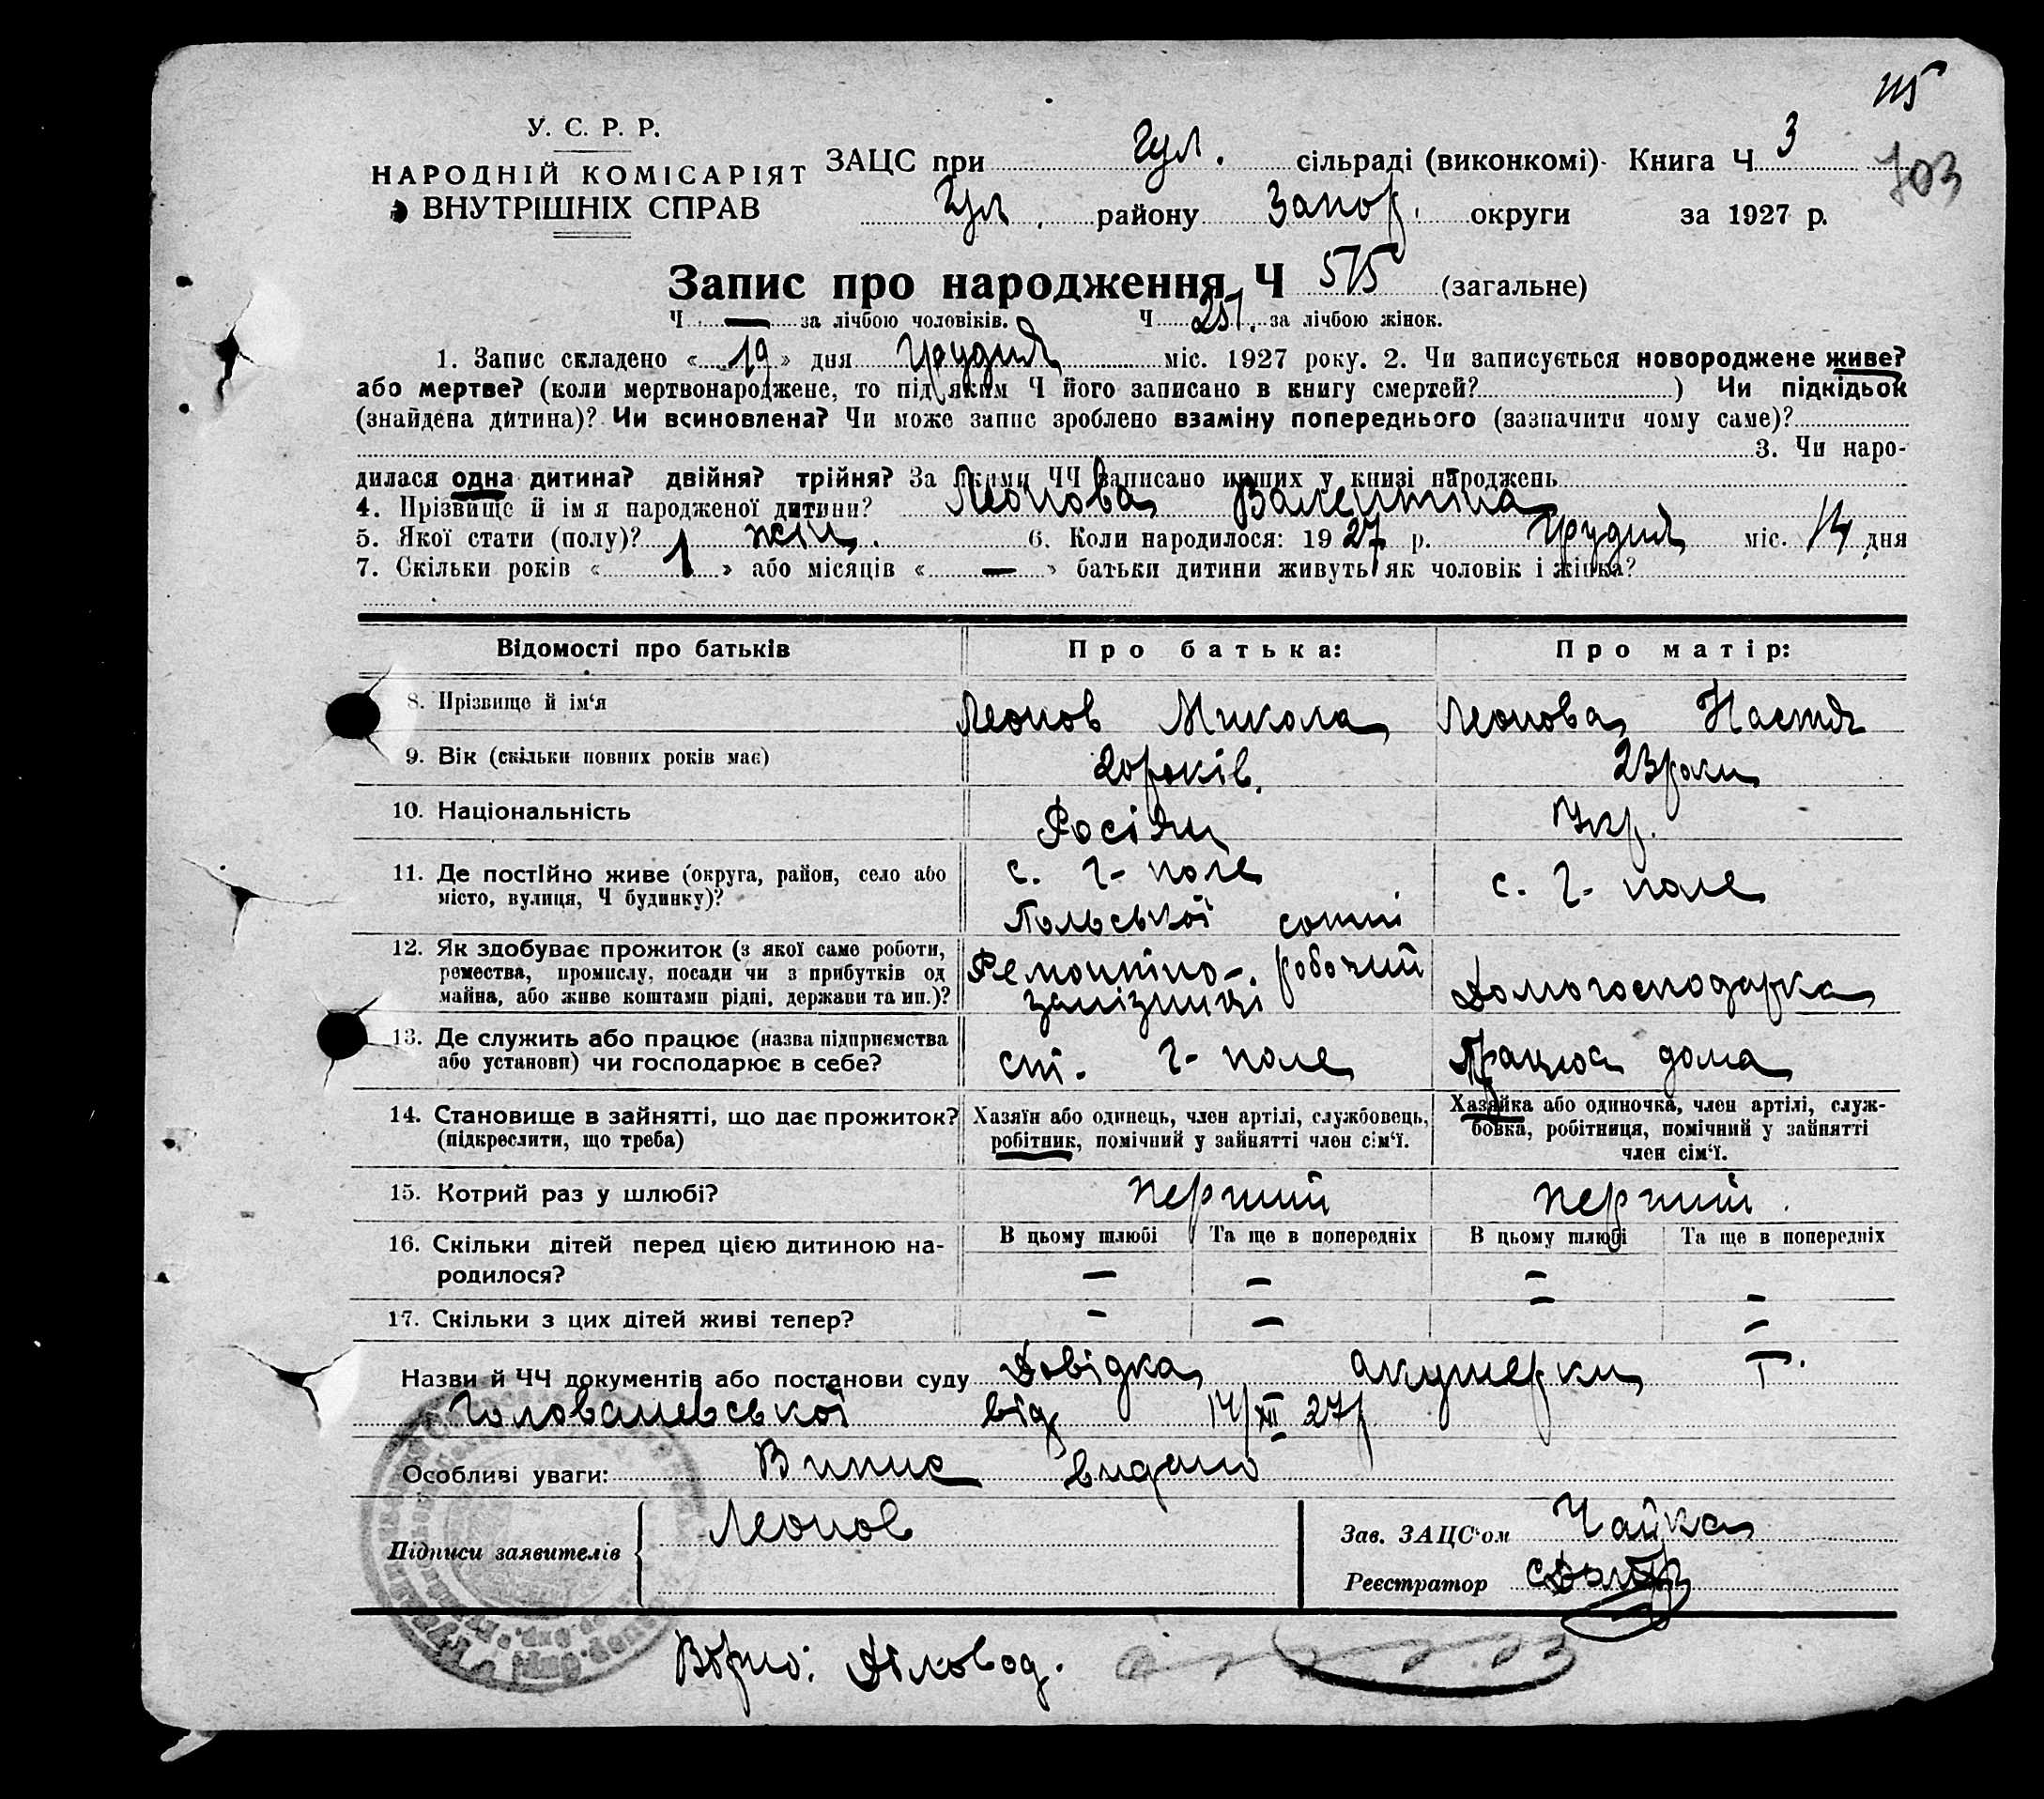 115
У. С. Р. Р.
НАРОДНІЙ КОМІСАРІЯТ
ВНУТРІШНІХ СПРАВ
ЗАЦС при Гул. сільраді (виконкомі) Книга Ч 3
703
Гул. району Запор. округи за 1927 р.
Запис про народження Ч 515 (загальне)
Ч — за лічбою чоловіків. Ч 257. за лічбою жінок.
1. Запис складено «19» дня Грудня міс. 1927 року. 2. Чи записується новороджене живе?
або мертве? (коли мертвонароджене, то під яким Ч його записано в книгу смертей?) Чи підкідьок
(знайдена дитина)? Чи всиновлена? Чи може запис зроблено взаміну попереднього (зазначити чому саме)?
3. Чи наро-
дилася одна дитина? двійня? трійня? За якими ЧЧ записано инших у книзі народжень
4. Прізвище й імя народженої дитини? Леонова Валентина
5. Якої стати (полу)? жін. 6. Коли народилося: 1927 р. Грудня міс. 14 дня
7. Скільки років «1» або місяців «—» батьки дитини живуть як чоловік і жінка?
Відомості про батьків Про батька: Про матір:
8. Прізвище й ім‘я Леонов Микола Леонова Настя
9. Вік (скільки повних років має) 20 років. 23 роки
10. Національність Росіян Укр.
11. Де постійно живе (округа, район, село або місто, вулиця, Ч будинку)? с. Г-поле Польської сотні с. Г-поле
12. Як здобуває прожиток (з якої саме роботи, ремества, промислу, посади чи з прибутків од майна, або живе коштами рідні, держави та ин.)? Ремонтно-робочий залізниці Домогосподарка
13. Де служить або працює (назва підприємства або установи) чи господарює в себе? ст. Г-поле Працює дома
14. Становище в зайнятті, що дає прожиток? (підкреслити, що треба) Хазяїн або одинець, член артілі, службовець, робітник, помічний у зайнятті член сім‘ї. Хазяйка або одиночка, член артілі, служ-бовка, робітниця, помічний у зайнятті член сім‘ї.
15. Котрий раз у шлюбі? перший перший.
16. Скільки дітей перед цією дитиною на-родилося? В цьому шлюбі — Та ще в попередніх — В цьому шлюбі — Та ще в попередніх —
17. Скільки з цих дітей живі тепер? — — — —
Назви й ЧЧ документів або постанови суду Довідка акушерки Г.
Головашевської від 14/XII 27р
Особливі уваги: Випис видано
Підписи заявителів Леонов
Зав. ЗАЦС‘ом Чайка
Реєстратор
Вірно: Діловод.